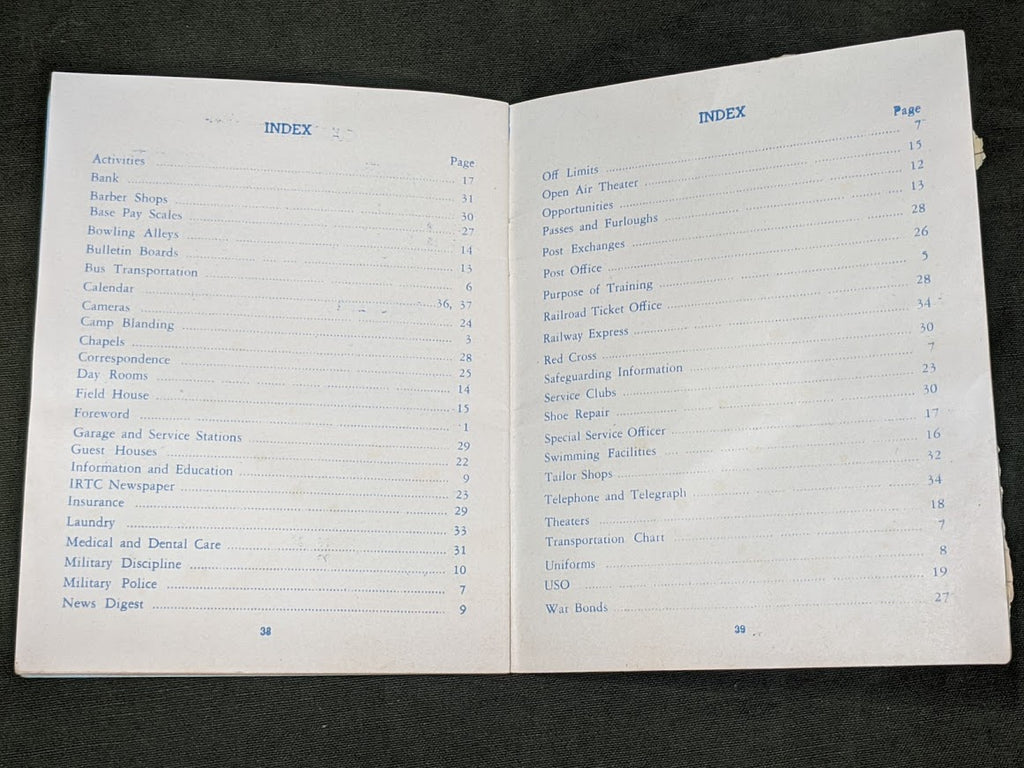 INDEX
Page
Activities ........ 17
Bank ........ 31
Barber Shops ........ 30
Base Pay Scales ........ 27
Bowling Alleys ........ 14
Bulletin Boards ........ 13
Bus Transportation ........ 6
Calendar ........ 36, 37
Cameras ........ 24
Camp Blanding ........ 3
Chapels ........ 28
Correspondence ........ 25
Day Rooms ........ 14
Field House ........ 15
Foreword ........ 1
Garage and Service Stations ........ 29
Guest Houses ........ 22
Information and Education ........ 9
IRTC Newspaper ........ 23
Insurance ........ 29
Laundry ........ 33
Medical and Dental Care ........ 31
Military Discipline ........ 10
Military Police ........ 7
News Digest ........ 9
38
INDEX
Page
Off Limits ........ 7
Open Air Theater ........ 15
Opportunities ........ 12
Passes and Furloughs ........ 13
Post Exchanges ........ 28
Post Office ........ 26
Purpose of Training ........ 5
Railroad Ticket Office ........ 28
Railway Express ........ 34
Red Cross ........ 30
Safeguarding Information ........ 7
Service Clubs ........ 23
Shoe Repair ........ 30
Special Service Officer ........ 17
Swimming Facilities ........ 16
Tailor Shops ........ 32
Telephone and Telegraph ........ 34
Theaters ........ 18
Transportation Chart ........ 7
Uniforms ........ 8
USO ........ 19
War Bonds ........ 27
39